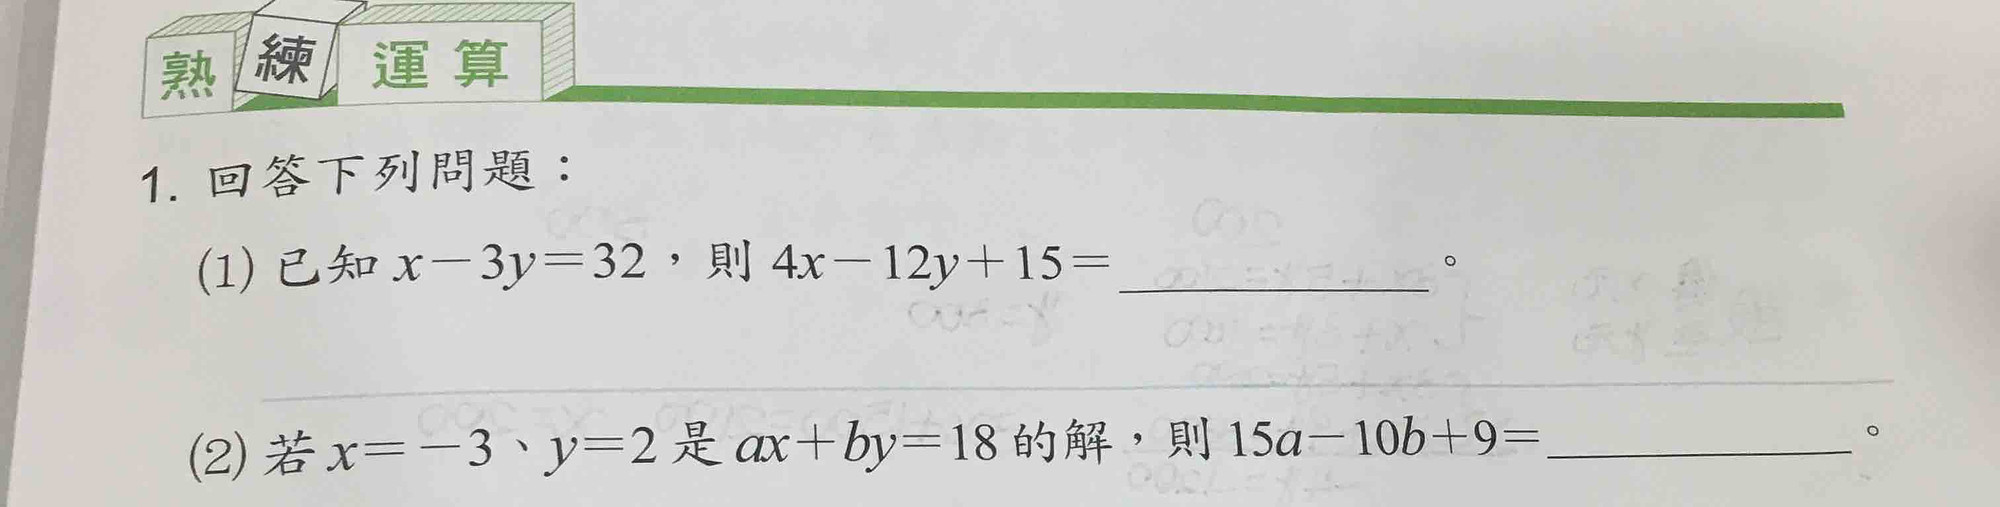 熟練運算
1. 回答下列問題：
(1) 已知 x－3y＝32，則 4x－12y＋15＝＿＿＿＿＿＿。
(2) 若 x＝－3、y＝2 是 ax＋by＝18 的解，則 15a－10b＋9＝＿＿＿＿＿＿。